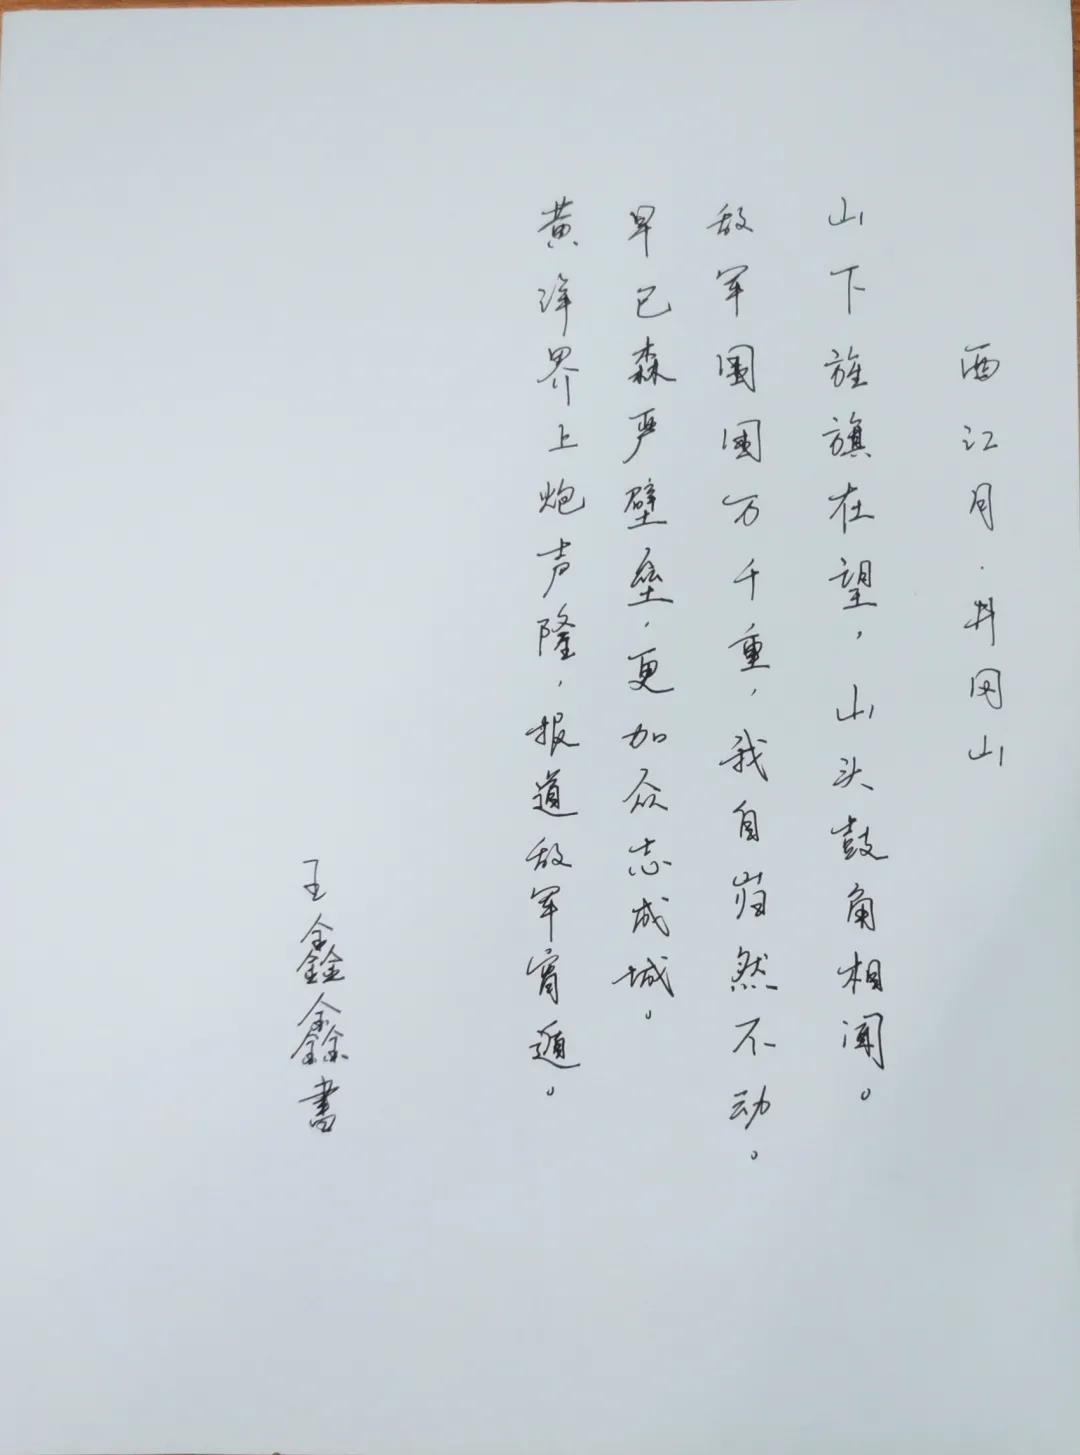 西江月·井冈山
山下旌旗在望，山头鼓角相闻。
敌军围困万千重，我自岿然不动。
早已森严壁垒，更加众志成城。
黄洋界上炮声隆，报道敌军宵遁。
王鑫鑫書